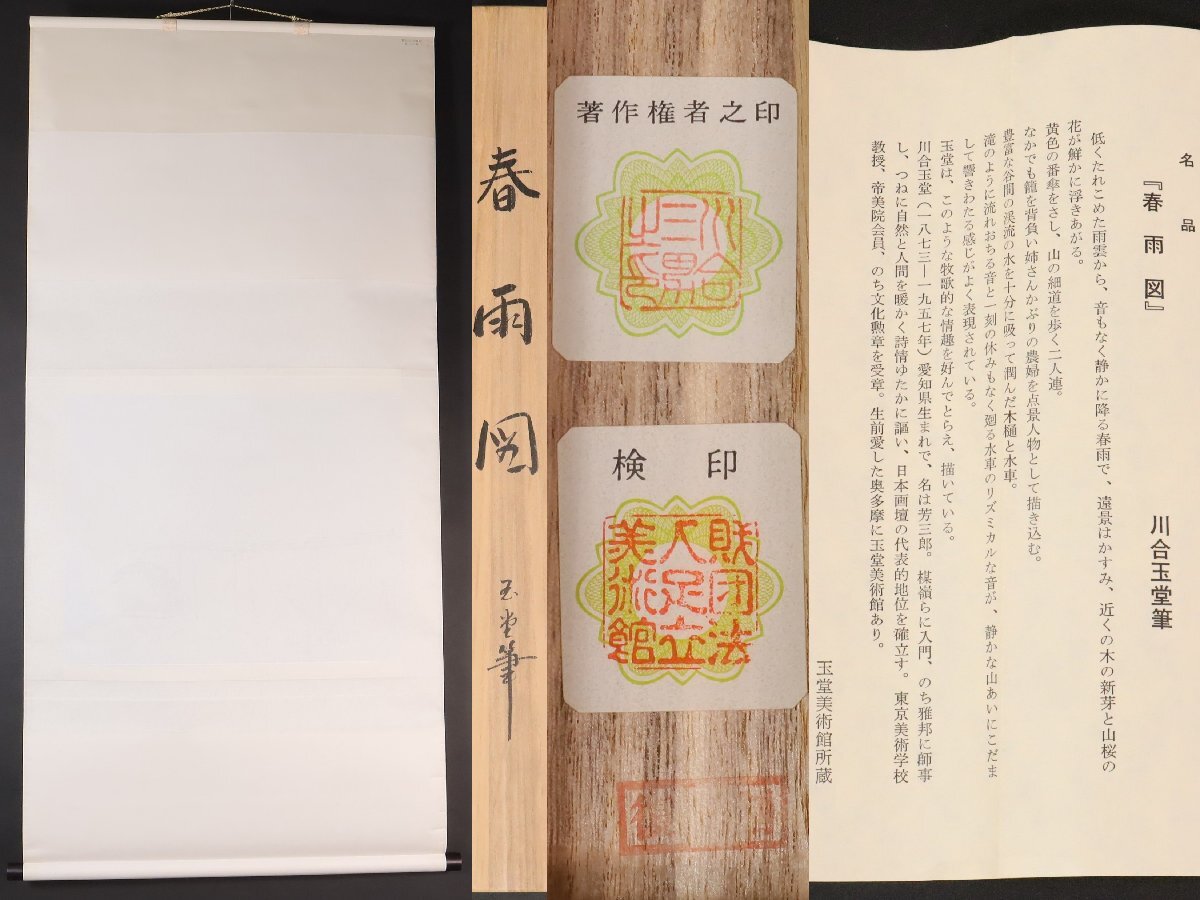 春雨図
玉堂筆
著作権者之印
検印
財団法
人足立
美術館
名品
『春雨図』
川合玉堂筆
低くたれこめた雨雲から、音もなく静かに降る春雨で、遠景はかすみ、近くの木の新芽と山桜の
花が鮮かに浮きあがる。
黄色の番傘をさし、山の細道を歩く二人連。
なかでも籠を背負い姉さんかぶりの農婦を点景人物として描き込む。
豊富な谷間の渓流の水を十分に吸って潤んだ木樋と水車。
滝のように流れおちる音と一刻の休みもなく廻る水車のリズミカルな音が、静かな山あいにこだま
して響きわたる感じがよく表現されている。
玉堂は、このような牧歌的な情趣を好んでとらえ、描いている。
川合玉堂（一八七三―一九五七年）愛知県生まれで、名は芳三郎。楳嶺らに入門、のち雅邦に師事
し、つねに自然と人間を暖かく詩情ゆたかに謳い、日本画壇の代表的地位を確立す。東京美術学校
教授、帝美院会員、のち文化勲章を受章。生前愛した奥多摩に玉堂美術館あり。
玉堂美術館所蔵